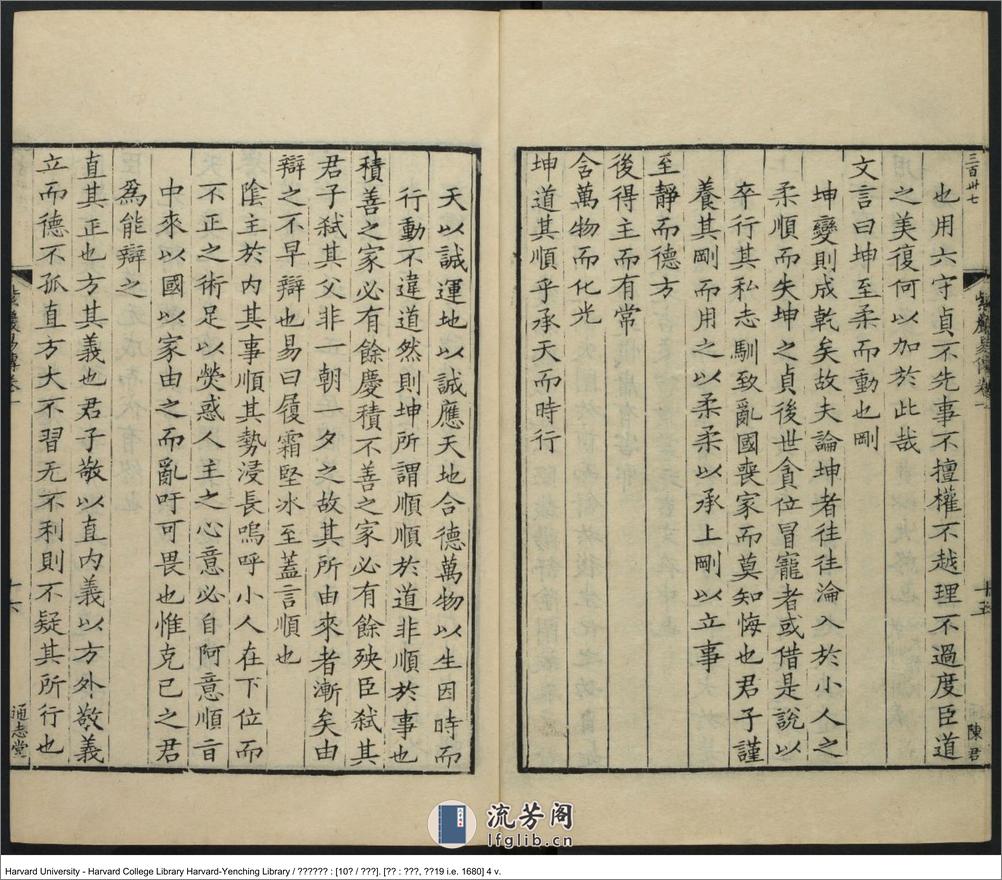 三百卅七
也用六守貞不先事不擅權不越理不過度臣道
之美復何以加於此哉
文言曰坤至柔而動也剛
坤變則成乾矣故夫論坤者往往淪入於小人之
柔順而失坤之貞後世貪位冒寵者或借是說以
卒行其私志馴致亂國喪家而莫知悔也君子謹
養其剛而用之以柔柔以承上剛以立事
至靜而德方
後得主而有常
含萬物而化光
坤道其順乎承天而時行
十五
陳君
天以誠運地以誠應天地合德萬物以生因時而
行動不違道然則坤所謂順順於道非順於事也
積善之家必有餘慶積不善之家必有餘殃臣弒其
君子弒其父非一朝一夕之故其所由來者漸矣由
辯之不早辯也易曰履霜堅冰至蓋言順也
陰主於內其事順其勢浸長嗚呼小人在下位而
不正之術足以熒惑人主之心意必自阿意順旨
中來以國以家由之而亂吁可畏也惟克已之君
為能辯之
直其正也方其義也君子敬以直內義以方外敬義
立而德不孤直方大不習无不利則不疑其所行也
易傳卷一
十六
通志堂
流芳阁
lfglib.cn
Harvard University - Harvard College Library Harvard-Yenching Library / ?????? : [10? / ???]. [?? : ???, ??19 i.e. 1680] 4 v.